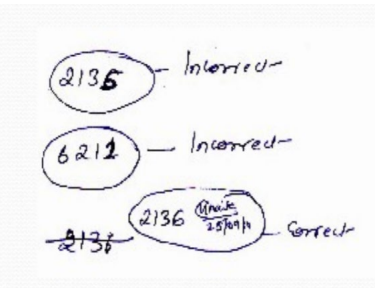 2135 - Incorrect
6212 - Incorrect
2136 2136 25/09/11 - Correct